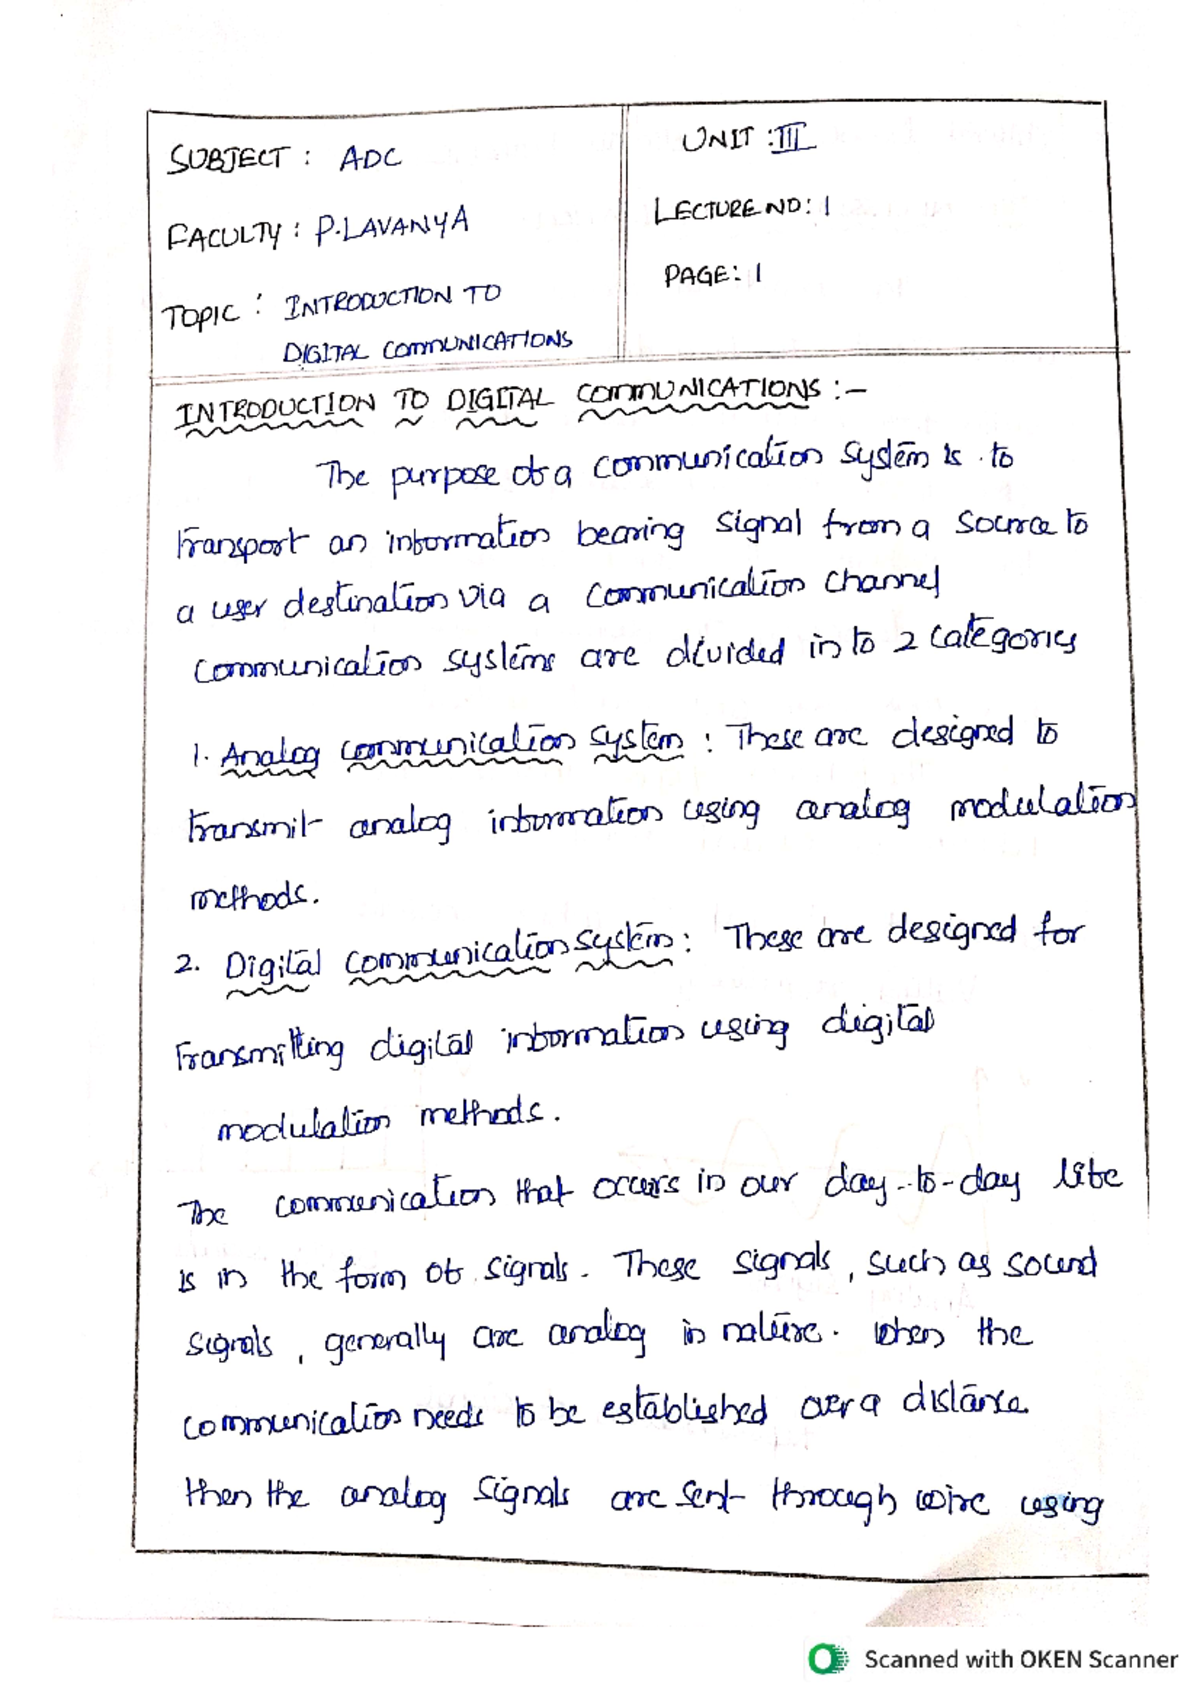 SUBJECT : ADC
FACULTY : P.LAVANYA
TOPIC : INTRODUCTION TO
DIGITAL COMMUNICATIONS
UNIT : III
LECTURE NO: 1
PAGE: 1
INTRODUCTION TO DIGITAL COMMUNICATIONS :-
The purpose of a communication system is to
transport an information bearing signal from a source to
a user destination via a communication channel
communication systems are divided in to 2 categories
1. Analog communication system : These are designed to
transmit analog information using analog modulation
methods.
2. Digital communication system : These are designed for
transmitting digital information using digital
modulation methods.
The communication that occurs in our day-to-day life
is in the form of signals. These signals, such as sound
signals, generally are analog in nature. When the
communication needs to be established over a distance
then the analog signals are sent through wire using
Scanned with OKEN Scanner